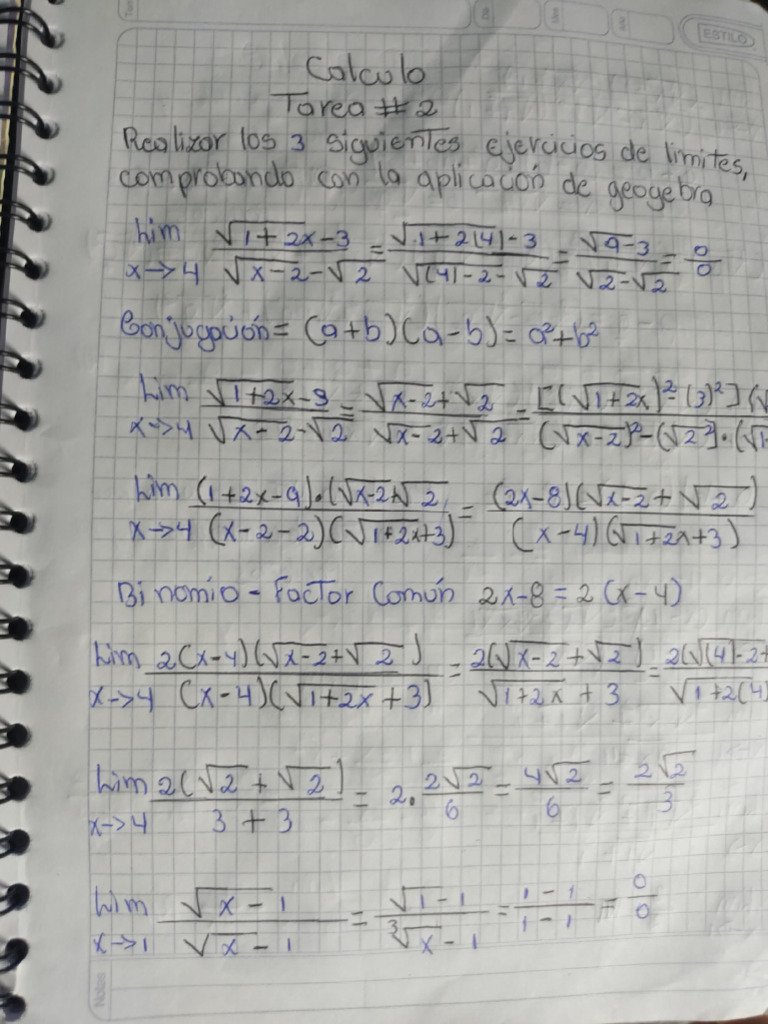 ESTILO
Calculo
Tarea #2
Realizar los 3 siguientes ejercicios de limites,
comprobando con la aplicación de geogebra
Lim x→4 (√(1+2x)-3)/(√(x-2)-√2) = (√(1+2(4))-3)/(√((4)-2)-√2) = (√9-3)/(√2-√2) = 0/0
Conjugación = (a+b)(a-b) = a²+b²
Lim x→4 (√(1+2x)-3)/(√(x-2)-√2) = (√(x-2)+√2)/(√(x-2)+√2) = [(√(1+2x))²-(3)²](√/(√(x-2))²-(√2²]·(√1
Lim x→4 (1+2x-9)·(√(x-2)+√2)/(x-2-2)(√(1+2x)+3) = (2x-8)(√(x-2)+√2)/(x-4)(√(1+2x)+3)
Binomio - Factor Común 2x-8=2(x-4)
Lim x→4 2(x-4)(√(x-2)+√2)/(x-4)(√(1+2x)+3) = 2(√(x-2)+√2)/(√(1+2x)+3) = 2(√(4)-2+/√1+2(4)
Lim x→4 2(√2+√2)/(3+3) = 2·2√2/6 = 4√2/6 = 2√2/3
Lim x→1 (√x-1)/(√x-1) = (√1-1)/(³√x-1) = (1-1)/(1-1) = 0/0
Notes